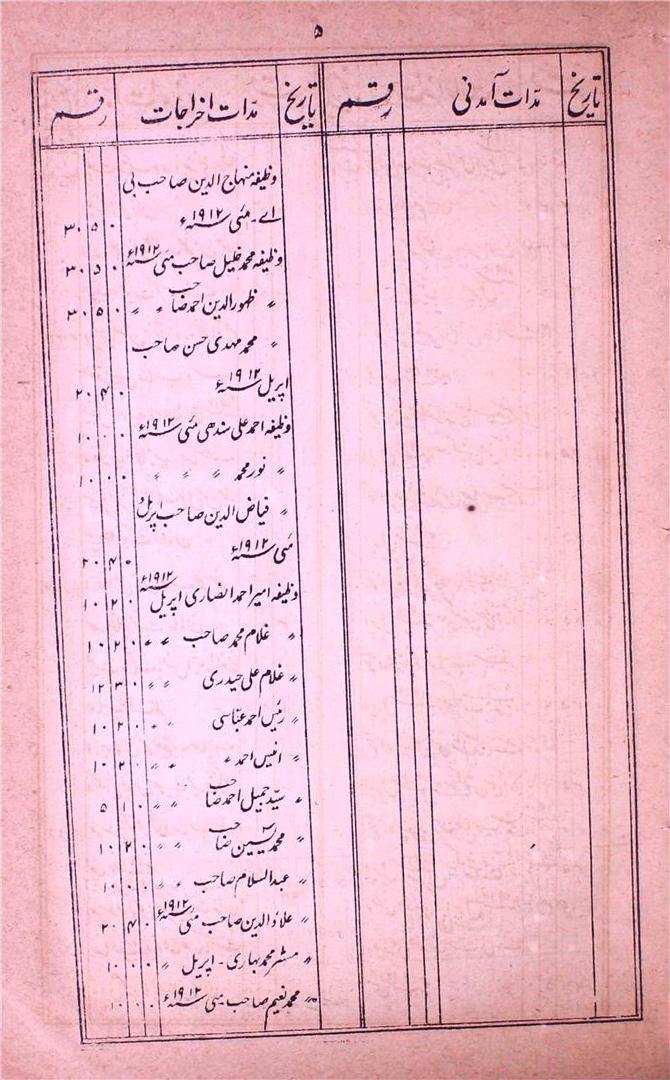 ۵
تاریخ مدّات آمدنی رقم تاریخ مدّات اخراجات رقم
وظیفہ منہاج الدین صاحب بی
اے۔ مئی ۱۹۱۲ء ۰ ۵ ۳۰
وظیفہ محمد خلیل صاحب مئی ۱۹۱۲ء ۰ ۵ ۳۰
〃 ظہور الدین احمد صاحب 〃 〃 ۰ ۵ ۳۰
〃 محمد مہدی حسن صاحب
اپریل ۱۹۱۲ء ۰ ۴ ۲۰
وظیفہ احمد علی سندھی مئی ۱۹۱۲ء ۰ ۰ ۱۰
〃 نور محمد 〃 〃 〃 ۰ ۰ ۱۰
〃 فیاض الدین صاحب اپریل و
مئی ۱۹۱۲ء ۰ ۴ ۲۰
وظیفہ امیر احمد انصاری اپریل ۱۹۱۲ء ۰ ۲ ۱۰
〃 غلام محمد صاحب 〃 〃 ۰ ۲ ۱۰
〃 غلام علی حیدری 〃 〃 ۰ ۳ ۱۲
〃 رئیس احمد عباسی 〃 〃 ۰ ۲ ۱۰
〃 انیس احمد 〃 〃 〃 ۰ ۲ ۱۰
〃 سیّد جمیل احمد صاحب 〃 〃 ۰ ۱ ۵
〃 محمد یٰسین صاحب 〃 〃 ۰ ۲ ۱۰
〃 عبد السلام صاحب 〃 〃 ۰ ۰ ۱۰
〃 علاؤ الدین صاحب مئی ۱۹۱۲ء ۰ ۴ ۲۰
〃 مسٹر محمد بہاری۔ اپریل 〃 ۰ ۰ ۱۰
〃 محمد نعیم صاحب مئی ۱۹۱۲ء ۰ ۰ ۱۰